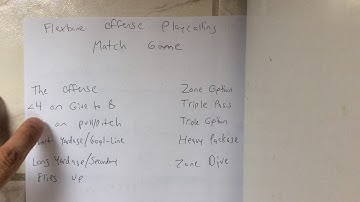 Flexbone Offense Playcalling
Match Game
The offense Zone Option
<4 on Give to B Triple Pass
on pull/pitch Triple Option
Yardage/Goal-Line Heavy Package
Long Yardage/Secondary Zone Dive
Flies up